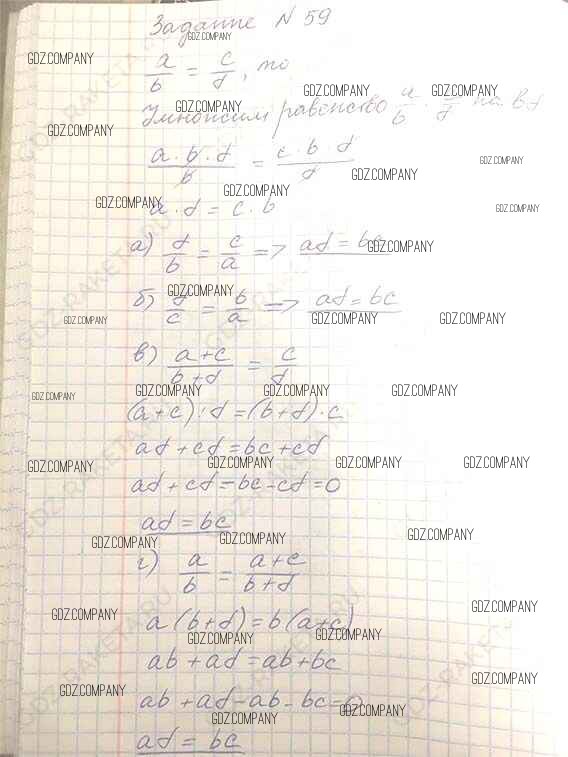 Задание N 59
a/b = c/d, то
Умножим равенство a/b · c/d на bd
a·b·d/b = c·b·d/d
a·d = c·b
а) d/b = c/a => ad = bc
б) d/c = b/a => ad = bc
в) a+c/b+d = c/d
(a+c)·d = (b+d)·c
ad + cd = bc + cd
ad + cd - bc - cd = 0
ad = bc
г) a/b = a+c/b+d
a(b+d) = b(a+c)
ab + ad = ab + bc
ab + ad - ab - bc = 0
ad = bc
GDZ.COMPANY
GDZ-RAKETA.RU